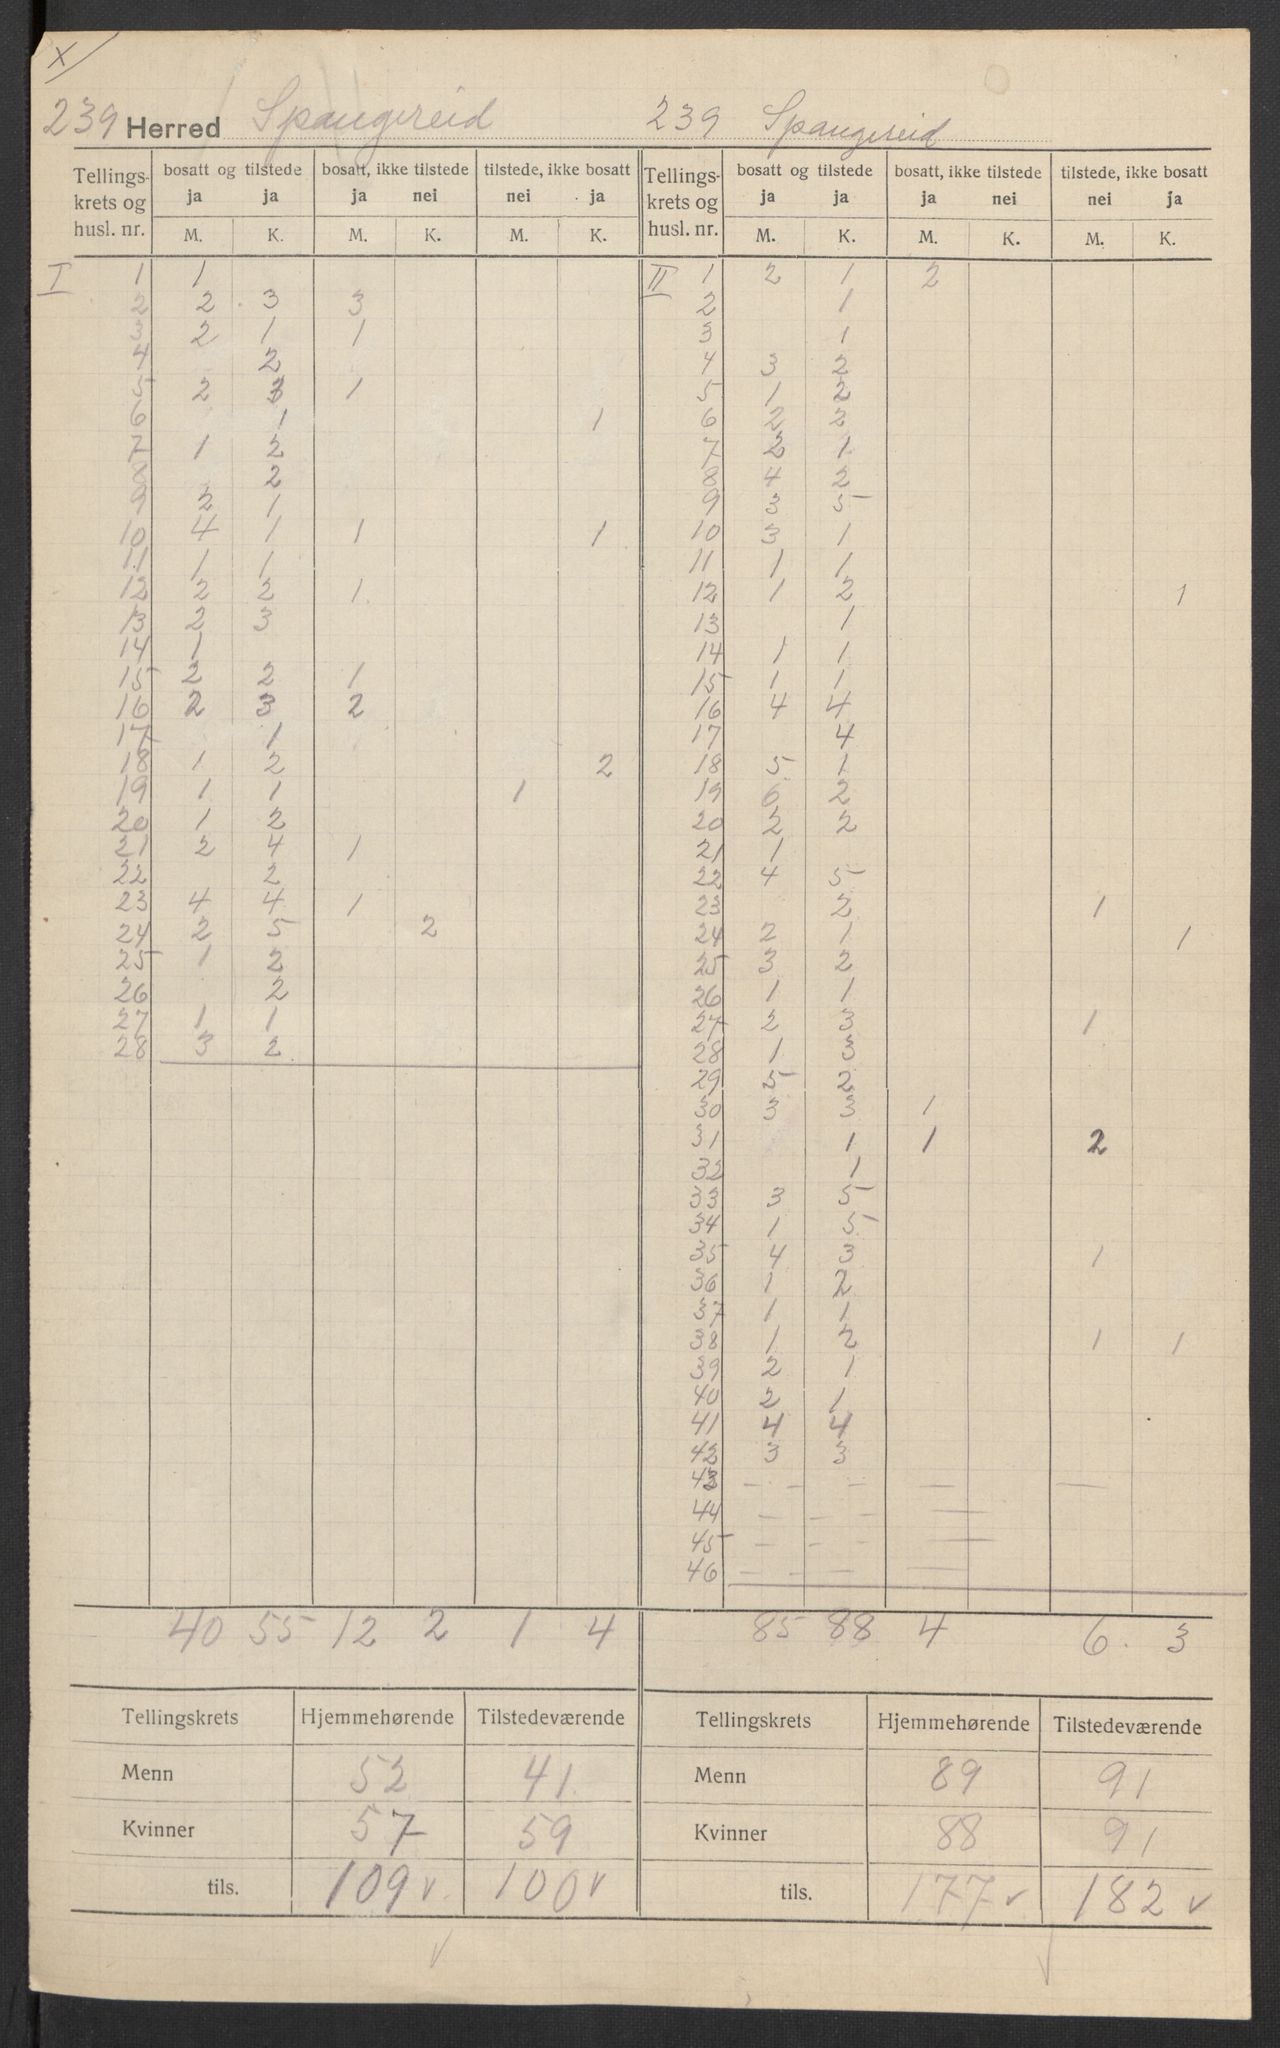 X
239 Herred Spangereid 239 Spangereid
Tellings-krets og husl. nr. | bosatt og tilstede ja ja | bosatt, ikke tilstede ja nei | tilstede, ikke bosatt nei ja | Tellings-krets og husl. nr. | bosatt og tilstede ja ja | bosatt, ikke tilstede ja nei | tilstede, ikke bosatt nei ja
M. K. M. K. M. K. M. K. M. K. M. K.
I 1 1 II 1 2 1 2
2 2 3 3 2 1
3 2 1 1 3 1
4 2 4 3 2
5 2 3 1 5 1 2
6 1 1 6 2 2
7 1 2 7 2 1
8 2 8 4 2
9 2 1 9 3 5
10 4 1 1 1 10 3 1
11 1 1 11 1 1
12 2 2 1 12 1 2 1
13 2 3 13 1
14 1 14 1 1
15 2 2 1 15 1 1
16 2 3 2 16 4 4
17 1 17 4
18 1 2 2 18 5 1
19 1 1 1 19 6 2
20 1 2 20 2 2
21 2 4 1 21 1
22 2 22 4 5
23 4 4 1 23 2 1
24 2 5 2 24 2 1 1
25 1 2 25 3 2
26 2 26 1 1
27 1 1 27 2 3 1
28 3 2 28 1 3
29 5 2
30 3 3 1
31 1 1 2
32 1
33 3 5
34 1 5
35 4 3 1
36 1 2
37 1 1
38 1 2 1 1
39 2 1
40 2 1
41 4 4
42 3 3
43 - - - - -
44 - - - -
45 - - - -
46 - - - -
40 55 12 2 1 4 85 88 4 6 3
Tellingskrets Hjemmehørende Tilstedeværende Tellingskrets Hjemmehørende Tilstedeværende
Menn 52 41 Menn 89 91
Kvinner 57 59 Kvinner 88 91
tils. 109 v 100 v tils. 177 v 182 v